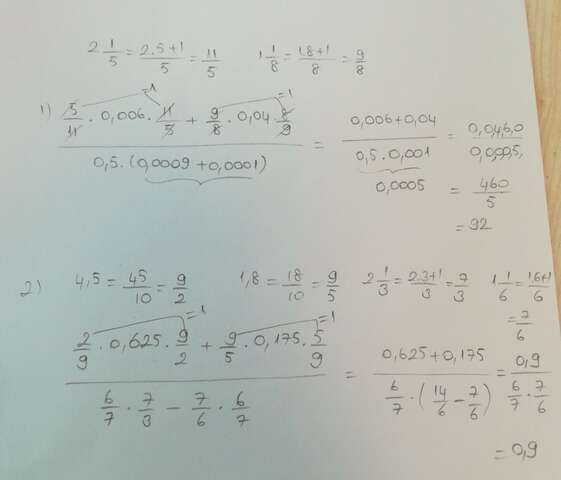 2 1/5 = (2.5+1)/5 = 11/5   1 1/8 = (1.8+1)/8 = 9/8
1) (5/11 · 0,006 · 11/5 + 9/8 · 0,04 · 8/9) / (0,5 · (0,0009 + 0,0001)) = (0,006+0,04) / (0,5 · 0,001) = 0,0460/0,0005,
=1 =1
0,0005 = 460/5
= 92
2) 4,5 = 45/10 = 9/2   1,8 = 18/10 = 9/5   2 1/3 = (2.3+1)/3 = 7/3   1 1/6 = (1.6+1)/6
= 7/6
=1 =1
(2/9 · 0,625 · 9/2 + 9/5 · 0,175 · 5/9) / (6/7 · 7/3 − 7/6 · 6/7) = (0,625 + 0,175) / (6/7 · (14/6 − 7/6)) = 0,9 / (6/7 · 7/6)
= 0,9